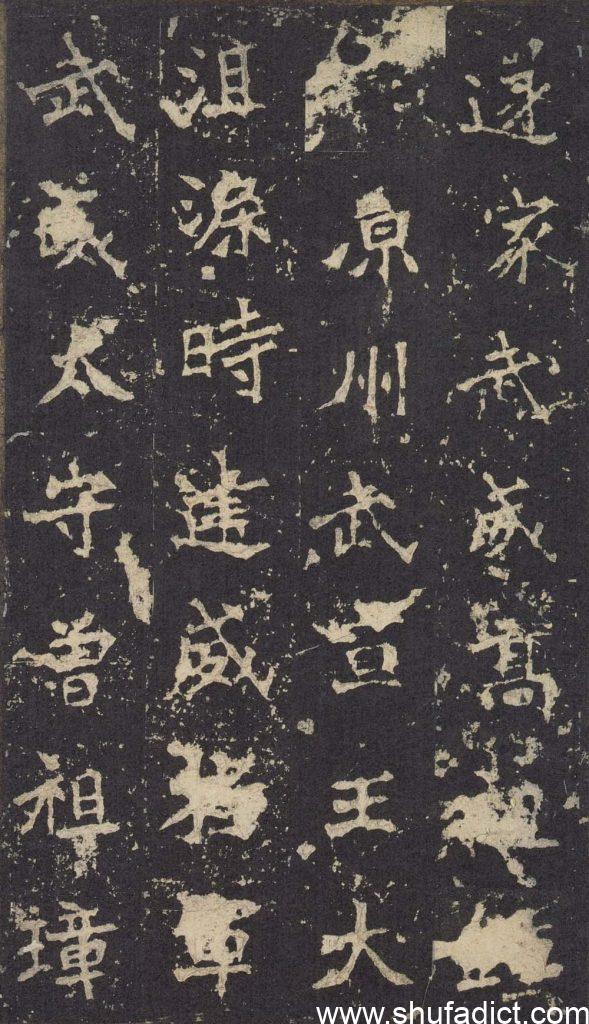 遂家武威髙祖
凉州武宣王大
沮渠時建威將軍
武威太守曾祖璋
www.shufadict.com